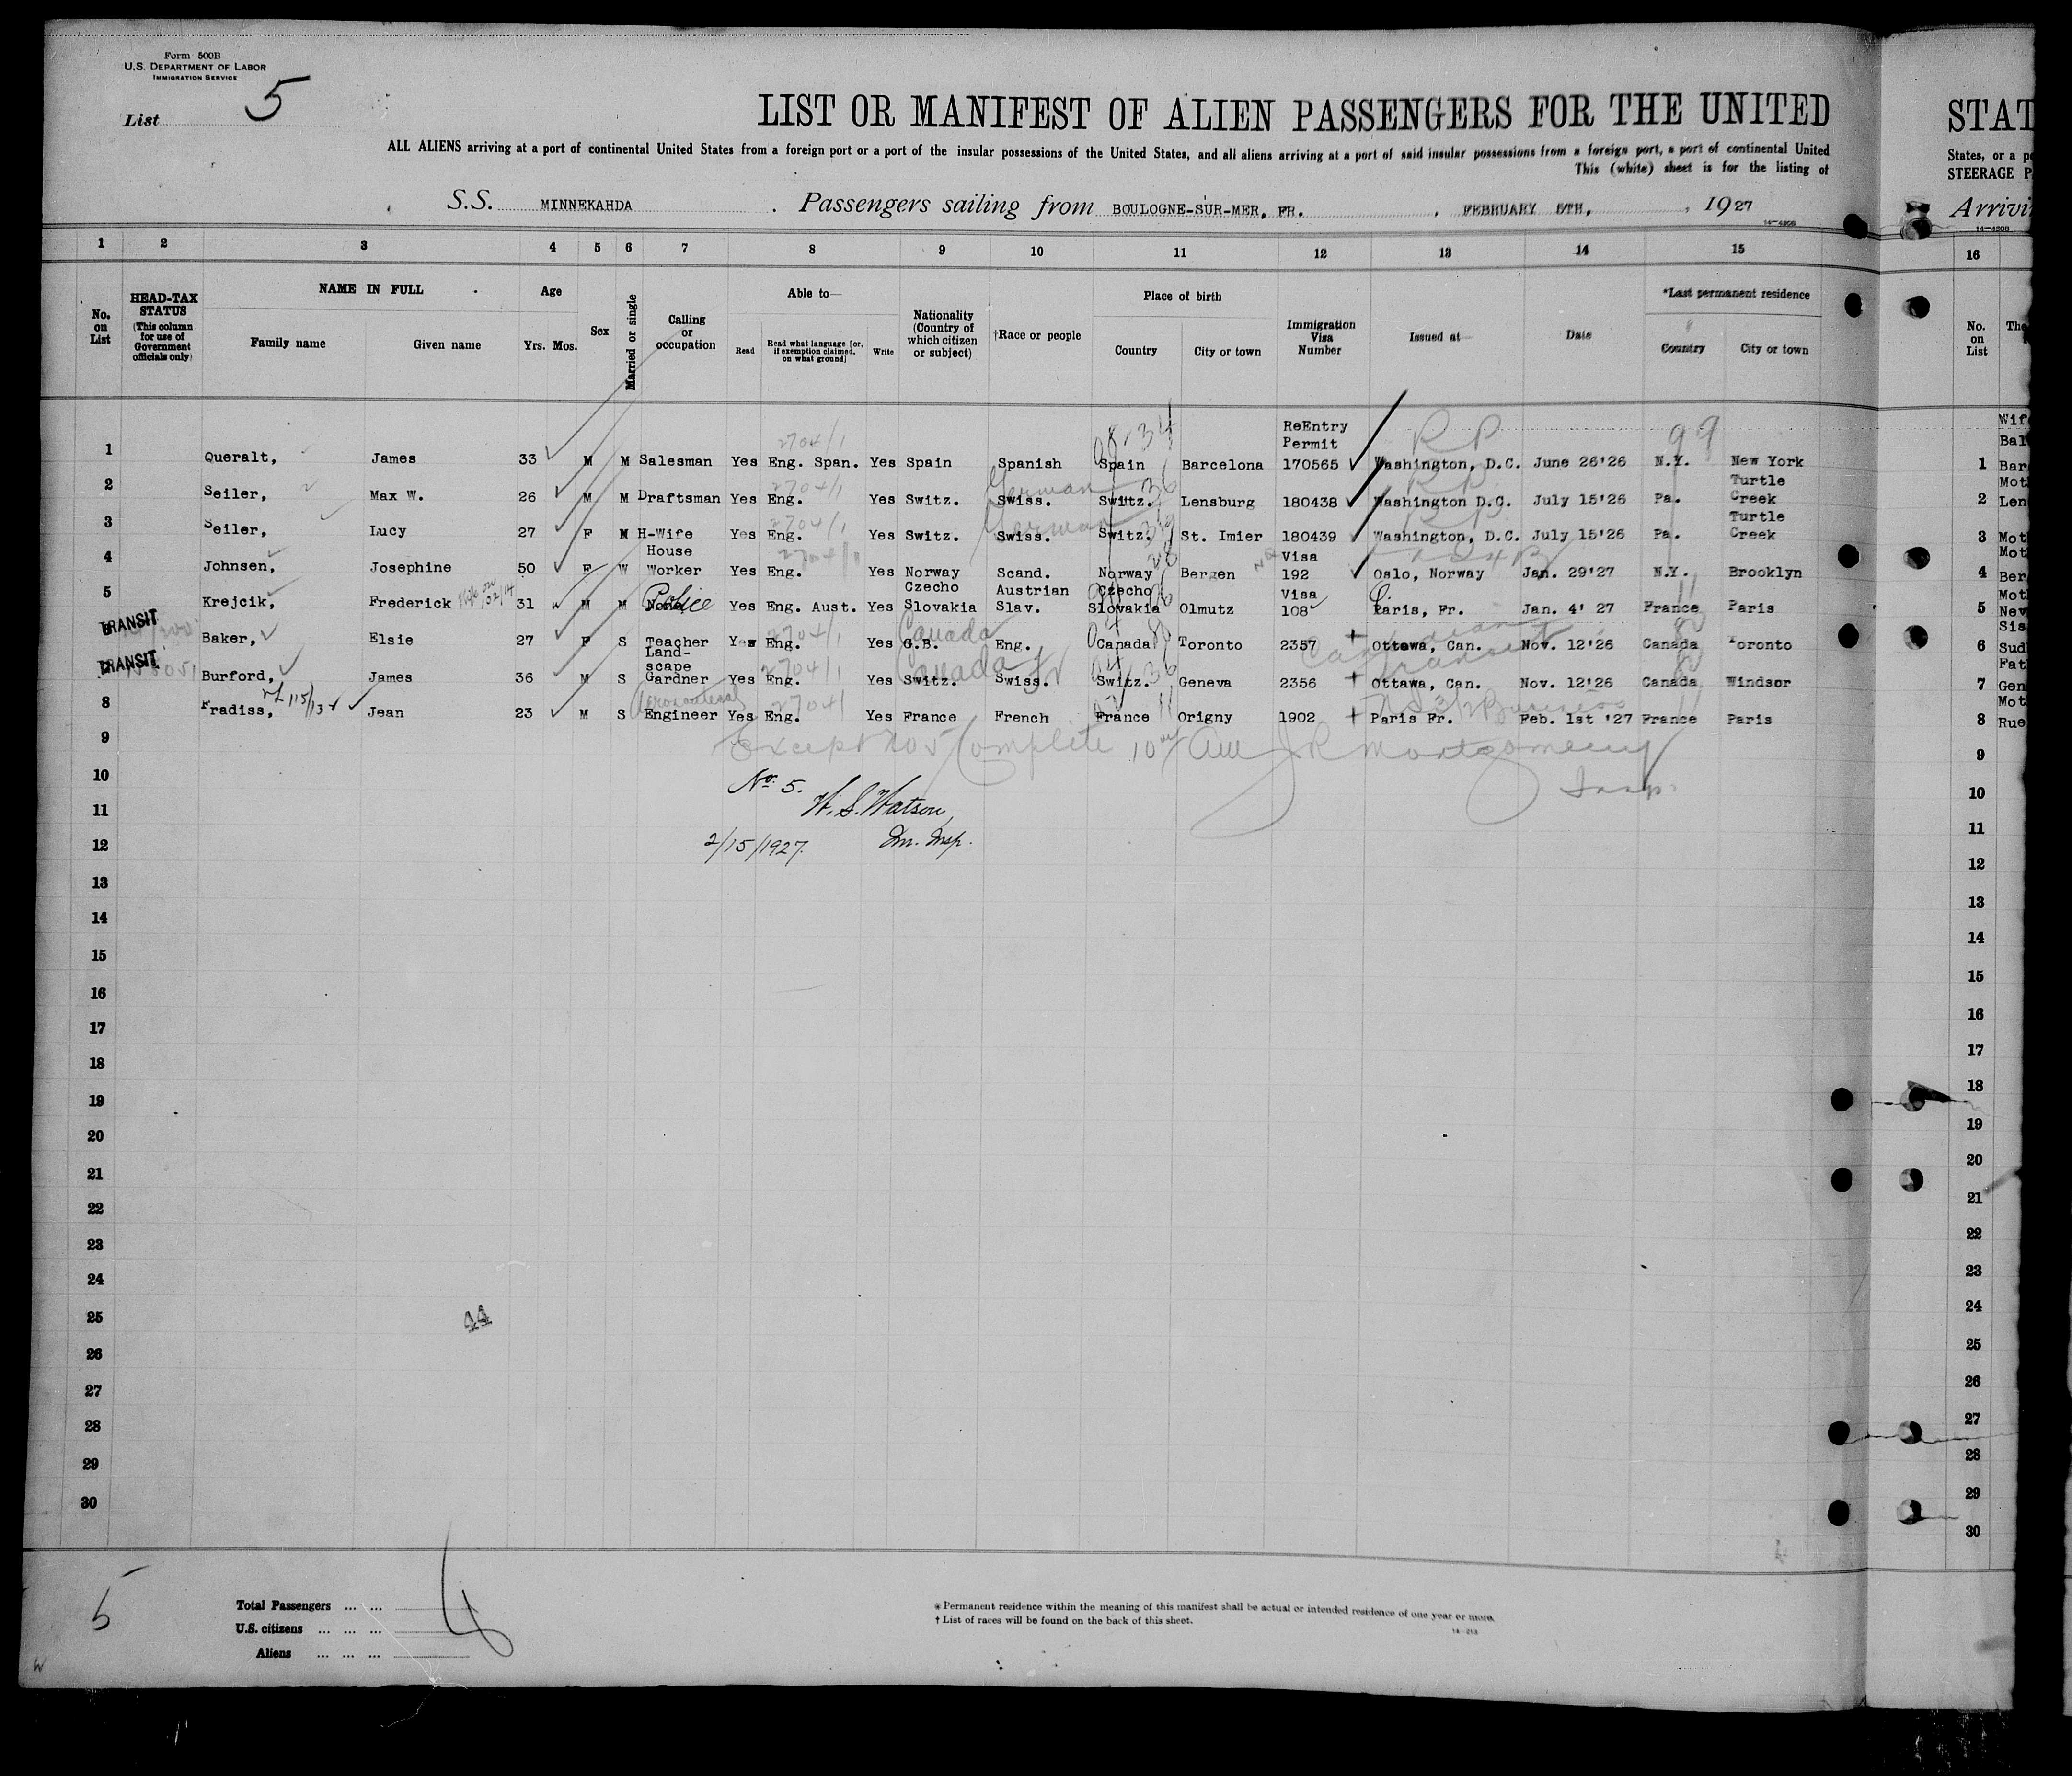 Form 500B
U.S. DEPARTMENT OF LABOR
IMMIGRATION SERVICE
List 5
LIST OR MANIFEST OF ALIEN PASSENGERS FOR THE UNITED
STAT
ALL ALIENS arriving at a port of continental United States from a foreign port or a port of the insular possessions of the United States, and all aliens arriving at a port of said insular possessions from a foreign port, a port of continental United
States, or a p
This (white) sheet is for the listing of
STEERAGE P
S.S. MINNEKAHDA. Passengers sailing from BOULOGNE-SUR-MER, FR., FEBRUARY 5TH, , 1927
Arrivi
14-4306
14-4306
1 2 3 4 5 6 7 8 9 10 11 12 13 14 15 16
No. on List
HEAD-TAX STATUS (This column for use of Government officials only)
NAME IN FULL
Family name Given name
Age
Yrs. Mos.
Sex
Married or single
Calling or occupation
Able to—
Read Read what language [or, if exemption claimed, on what ground] Write
Nationality (Country of which citizen or subject)
†Race or people
Place of birth
Country City or town
Immigration Visa Number
Issued at—
Date
*Last permanent residence
Country City or town
No. on List
The
ReEntry Permit
1 Queralt, James 33 M M Salesman Yes Eng. Span. Yes Spain Spanish Spain Barcelona 170565 Washington, D.C. June 26'26 N.Y. New York
2704/1 RP 99
2 Seiler, Max W. 26 M M Draftsman Yes Eng. Yes Switz. Swiss. Switz. Lensburg 180438 Washington D.C. July 15'26 Pa. Turtle Creek
2704/1 German RP
3 Seiler, Lucy 27 F M H-Wife Yes Eng. Yes Switz. Swiss. Switz. St. Imier 180439 Washington, D.C. July 15'26 Pa. Turtle Creek
2704/1 German RP
4 Johnsen, Josephine 50 F W House Worker Yes Eng. Yes Norway Scand. Norway Bergen Visa 192 Oslo, Norway Jan. 29'27 N.Y. Brooklyn
5 Krejcik, Frederick 31 M M None Police Yes Eng. Aust. Yes Czecho Slovakia Austrian Slav. Czecho Slovakia Olmutz Visa 108 Paris, Fr. Jan. 4' 27 France Paris
TRANSIT
Baker, Elsie 27 F S Teacher Yes Eng. Yes G.B. Eng. Canada Toronto 2357 Ottawa, Can. Nov. 12'26 Canada Toronto
2704/1 Canada
TRANSIT
Burford, James 36 M S Land-scape Gardner Yes Eng. Yes Switz. Swiss. Switz. Geneva 2356 Ottawa, Can. Nov. 12'26 Canada Windsor
2704/1 Canada
8 Fradiss, Jean 23 M S Engineer Yes Eng. Yes France French France Origny 1902 Paris Fr. Feb. 1st '27 France Paris
Aeronautical 2704/
Wif
Bal
1 Bar
Mot
2 Len
3 Mot
Mot
4 Ber
Mot
5 Nev
Sis
6 Sud
Fat
7 Gen
Mot
8 Rue
Except no 5 Complete JR Montgomery
Insp.
No. 5.
W. S. Watson,
2/15/1927. Im. Insp.
9 9
10 10
11 11
12 12
13 13
14 14
15 15
16 16
17 17
18 18
19 19
20 20
21 21
22 22
23 22
24 23
25 24
26 25
27 26
28 27
29 28
30 29
30
44
5
Total Passengers ... ...
U.S. citizens ... ... ...
Aliens ... ... ...
* Permanent residence within the meaning of this manifest shall be actual or intended residence of one year or more.
† List of races will be found on the back of this sheet.
14-213